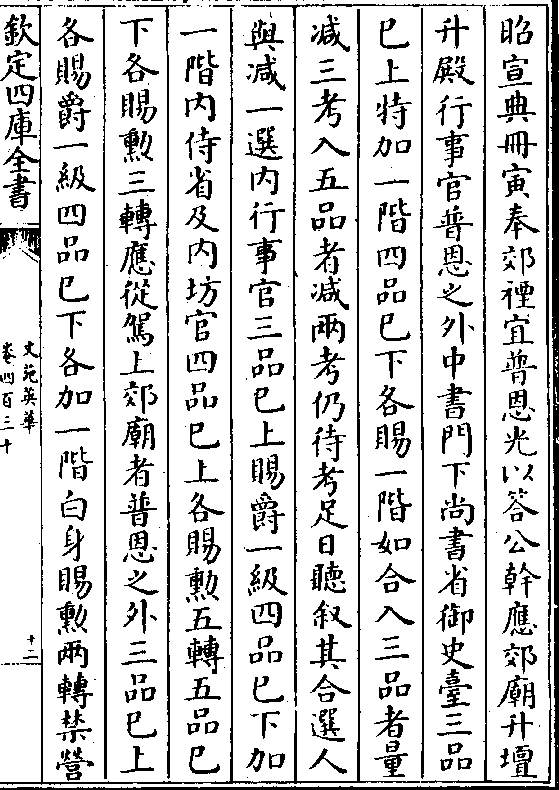 昭宣典冊寅奉郊禋宜普恩光以答公幹應郊廟升壇
升殿行事官普恩之外中書門下尚書省御史臺三品
已上特加一階四品已下各賜一階如合入三品者量
减三考入五品者减兩考仍待考足日聽叙其合選人
與减一選内行事官三品已上賜爵一級四品已下加
一階内侍省及内坊官四品已上各賜勲五轉五品已
下各賜勲三轉應從駕上郊廟者普恩之外三品已上
各賜爵一級四品已下各加一階白身賜勲兩轉禁營
欽定四庫全書
文苑英華
卷四百三十
十二